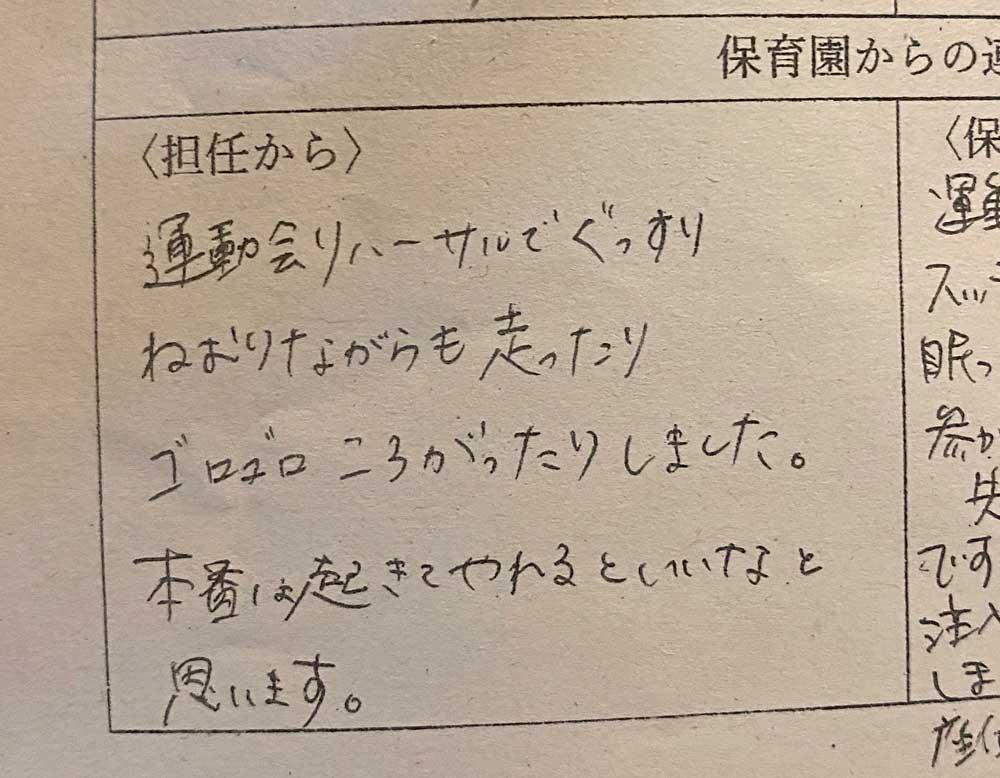 保育園からの連
〈担任から〉
運動会リハーサルでぐっすり
ねむりながらも走ったり
ゴロゴロころがったりしました。
本番は起きてやれるといいなと
思います。
〈保
運動
スッ
眠っ
参加
失
です
注入
しま